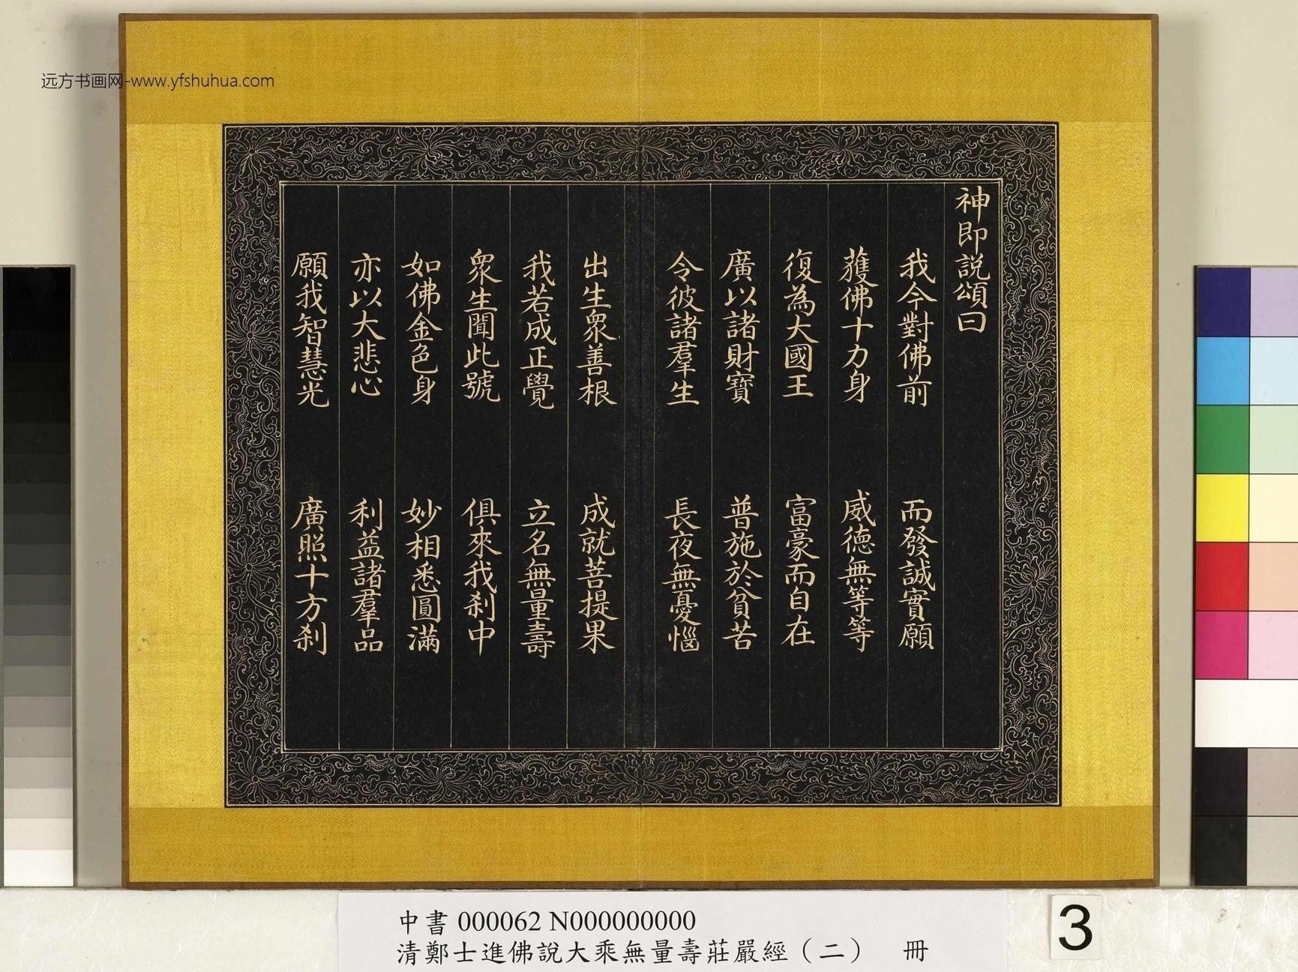 远方书画网-www.yfshuhua.com
神即説頌曰
我今對佛前 而發誠實願
獲佛十力身 威德無等等
復為大國王 富豪而自在
廣以諸財寶 普施於貧苦
令彼諸羣生 長夜無憂惱
出生衆善根 成就菩提果
我若成正覺 立名無量壽
衆生聞此號 俱來我刹中
如佛金色身 妙相悉圓滿
亦以大悲心 利益諸羣品
願我智慧光 廣照十方刹
中書 000062 N000000000
清鄭士進佛說大乘無量壽莊嚴經（二） 冊
3